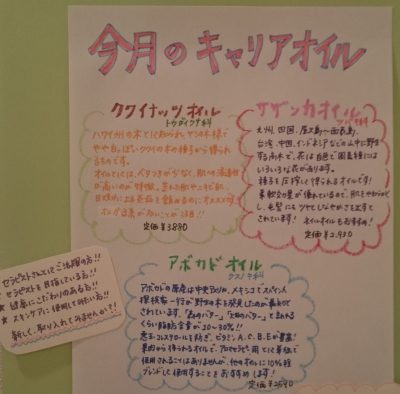 今月のキャリアオイル
ククイナッツオイル
トウダイグサ科
ハワイ州の木としても知られ、ヤシの木様で
やや白っぽいククイの木の種子から得られ
るものです。
オイルとしては、ベタつきが少なく、肌への浸透性
が高いのが特徴。荒れた肌やニキビ肌、
日焼けによる炎症を鎮めるのに、オススメです。
定価¥3890
サザンカオイル
ツバキ科
九州、四国、屋久島〜西表島、
台湾、中国、インドネシアなどの山中に野生
する高木で、花は白色で園芸種には
いろいろな花があります。
種子を圧搾して得られるオイルです!
柔軟効果が優れているので、肌をやわらか
し、毛髪にもツヤとしなやかさを立て
てされています! ネイルオイルもおすすめ!
定価¥2,930
アボカドオイル
クスノキ科
アボカドの原産は中央アメリカ、メキシコでスペイン人
探検家一行が野生の木を発見したのが最初と
されています。「森のバター」「大地のバター」とも言われる
くらい脂肪含量が20〜30%!!
悪玉コレステロールを防ぎ、ビタミンA、C、B、Eが豊富!
果肉から得られるオイルで、アロマセラピー用として単独で
使用されることはありませんが、他のオイルに10%程
ブレンドして使用することをおすすめします!
定価
セラピストさんとしてご活躍の方!!
★ セラピストを目指している方!!
★ 健康にこだわりのある方!!
★ スキンケアに使用してみたい方!!
新しく、取り入れてみませんか?!